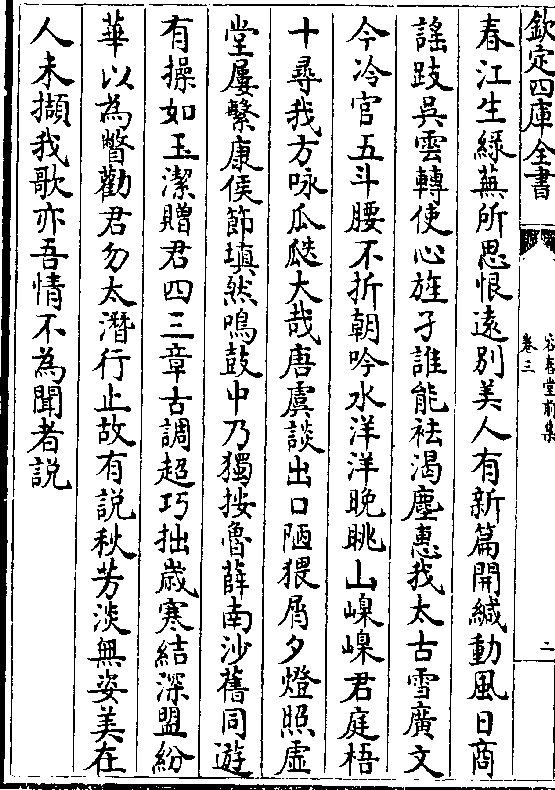 欽定四庫全書
容春堂前集
卷三
二
春江生綠蕪所思恨遠别美人有新篇開緘動風日商
謠跂吳雲轉使心旌孑誰能祛渴塵惠我太古雪廣文
今冷官五斗腰不折朝吟水洋洋晚眺山嵲嵲君庭梧
十尋我方咏瓜瓞大哉唐虞談出口陋猥屑夕燈照虛
堂屢繫康侯節填然鳴鼓中乃獨按魯薛南沙舊同遊
有操如玉潔贈君四三章古調超巧拙歲寒結深盟紛
華以為瞥勸君勿太潛行止故有説秋芳淡無姿美在
人未擷我歌亦吾情不為聞者説